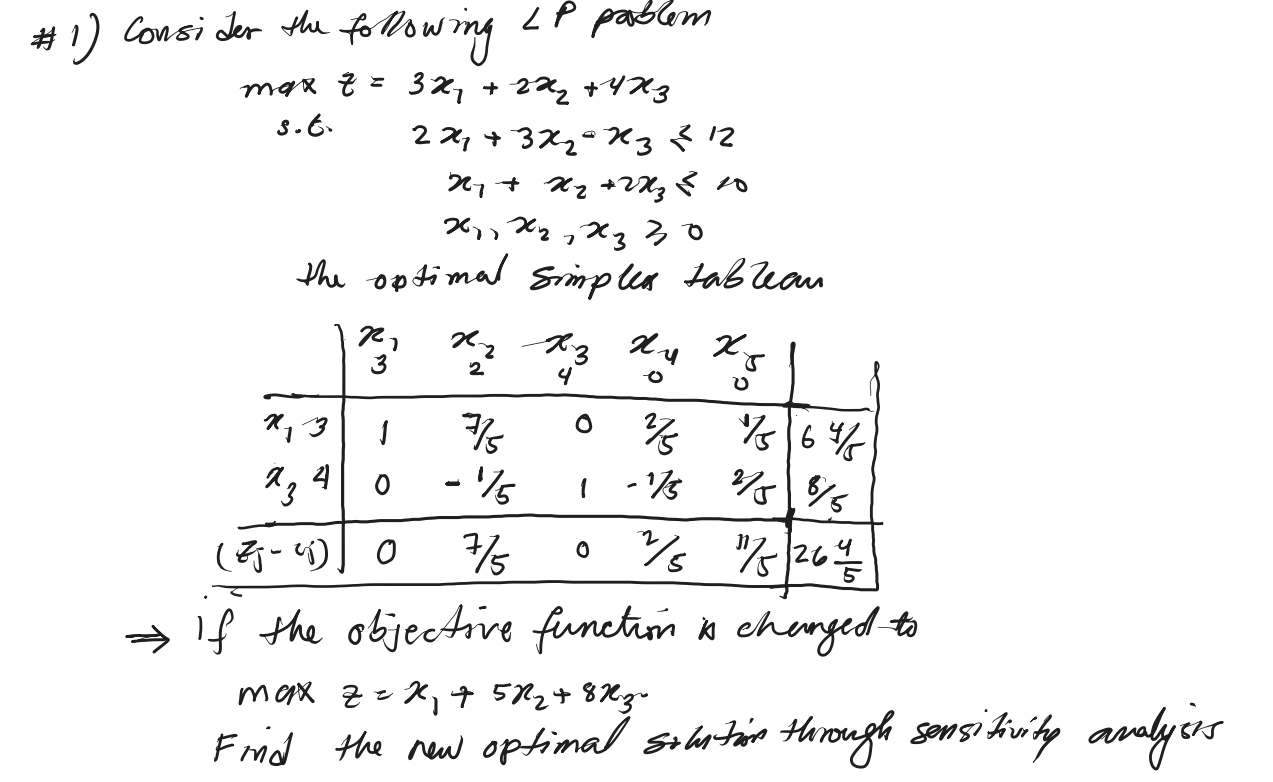 #1) Consider the following LP problem
max z = 3x₁ + 2x₂ + 4x₃
s.t. 2x₁ + 3x₂ - x₃ ≤ 12
x₁ + x₂ + 2x₃ ≤ 10
x₁, x₂, x₃ ≥ 0
the optimal simplex tableau
x₁ x₂ x₃ x₄ x₅
3 2 4 0 0
x₁ 3 1 7/5 0 2/5 1/5 6 4/5
x₃ 4 0 -1/5 1 -1/5 2/5 8/5
(zj - cj) 0 7/5 0 2/5 11/5 26 4/5
⇒ if the objective function is changed to
max z = x₁ + 5x₂ + 8x₃.
Find the new optimal solution through sensitivity analysis